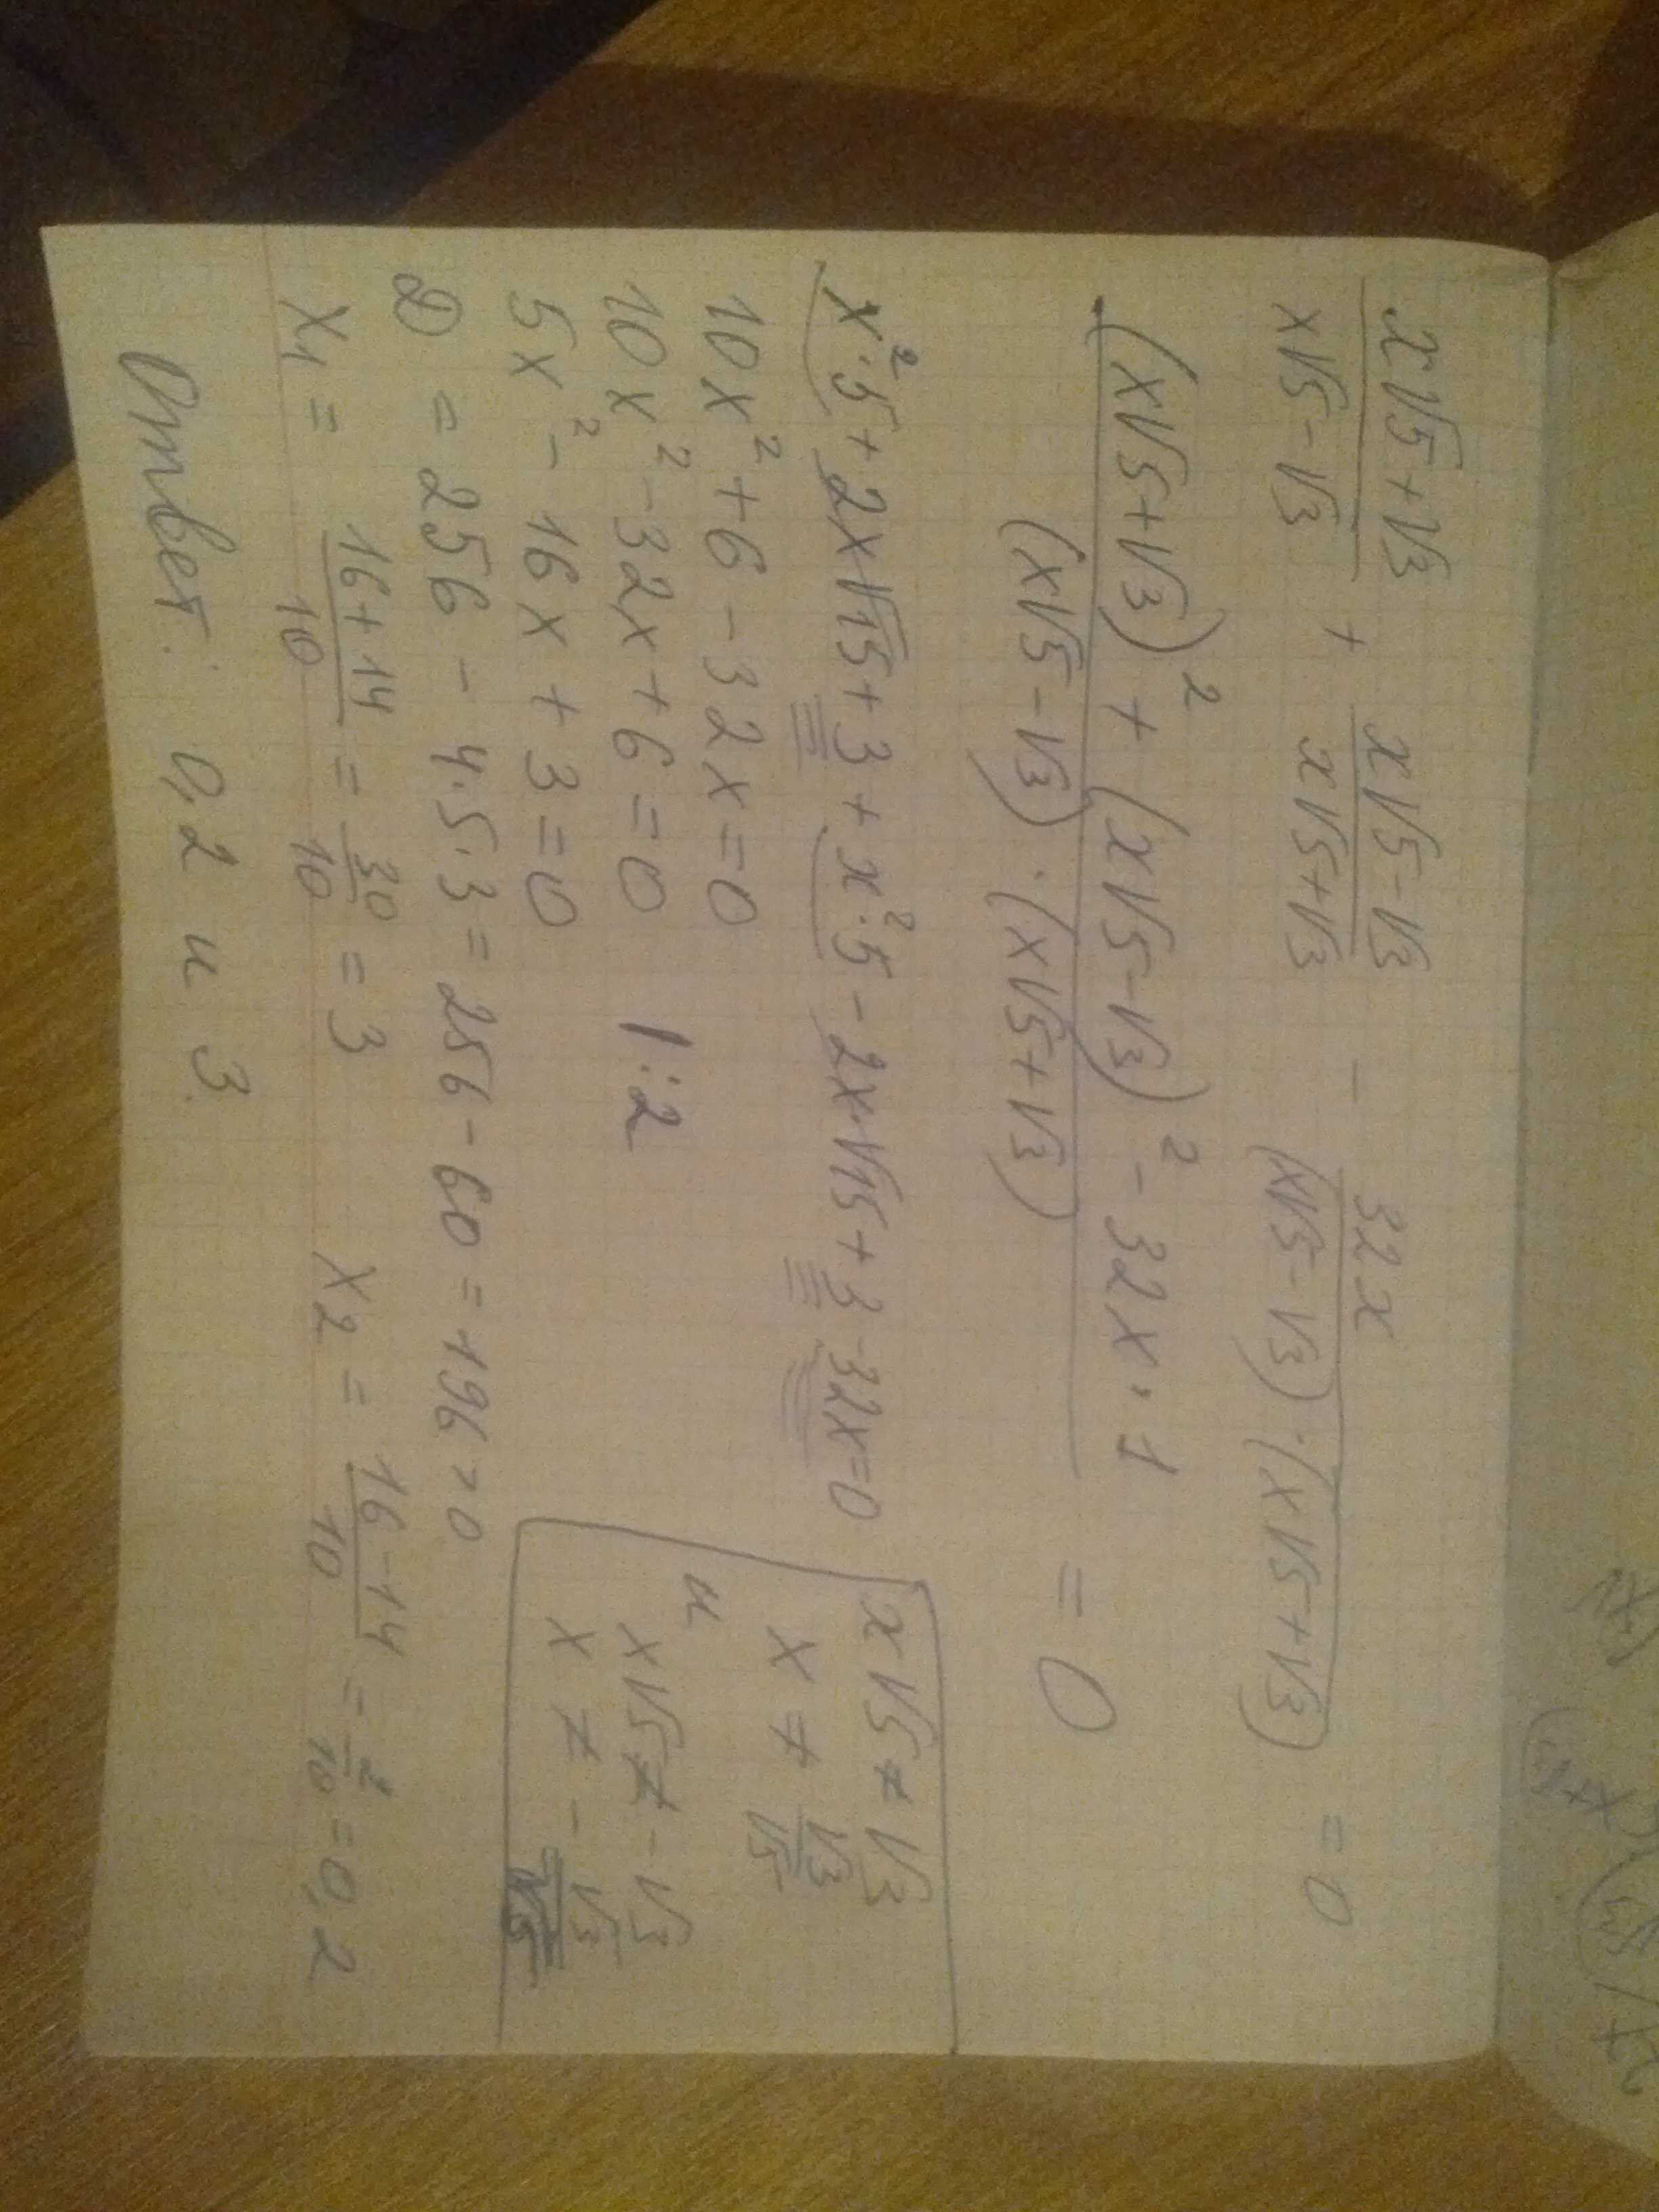 (x√5+√3)/(x√5-√3) + (x√5-√3)/(x√5+√3) - 32x/((x√5-√3)·(x√5+√3)) = 0
((x√5+√3)² + (x√5-√3)² - 32x·1)/((x√5-√3)·(x√5+√3)) = 0
x²·5+2x√15+3+x²·5-2x·√15+3-32x=0
10x²+6-32x=0
10x²-32x+6=0 |:2
5x²-16x+3=0
D = 256-4·5·3=256-60=196>0
x√5≠√3
x≠√3/√5
и
x√5≠-√3
x≠-√3/√5
x₁ = (16+14)/10 = 30/10 = 3 x₂ = (16-14)/10 = 2/10 = 0,2
Ответ: 0,2 и 3.